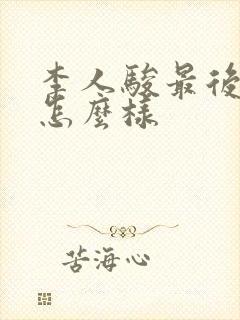 李人駿最後
怎麼樣
苦海心